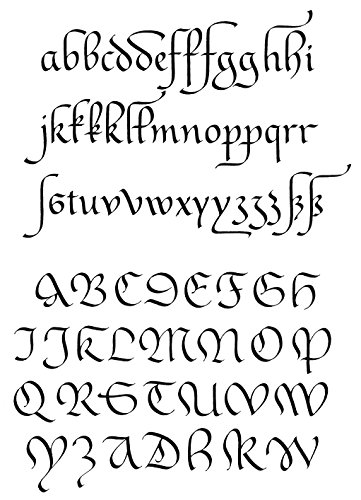 abbcddefffgghhi
jkkkkllmnoppqrr
ſstuvvwxyyzzzßß
ABCDEFGH
IJKLMNOP
QRSTUVW
YZADHKW